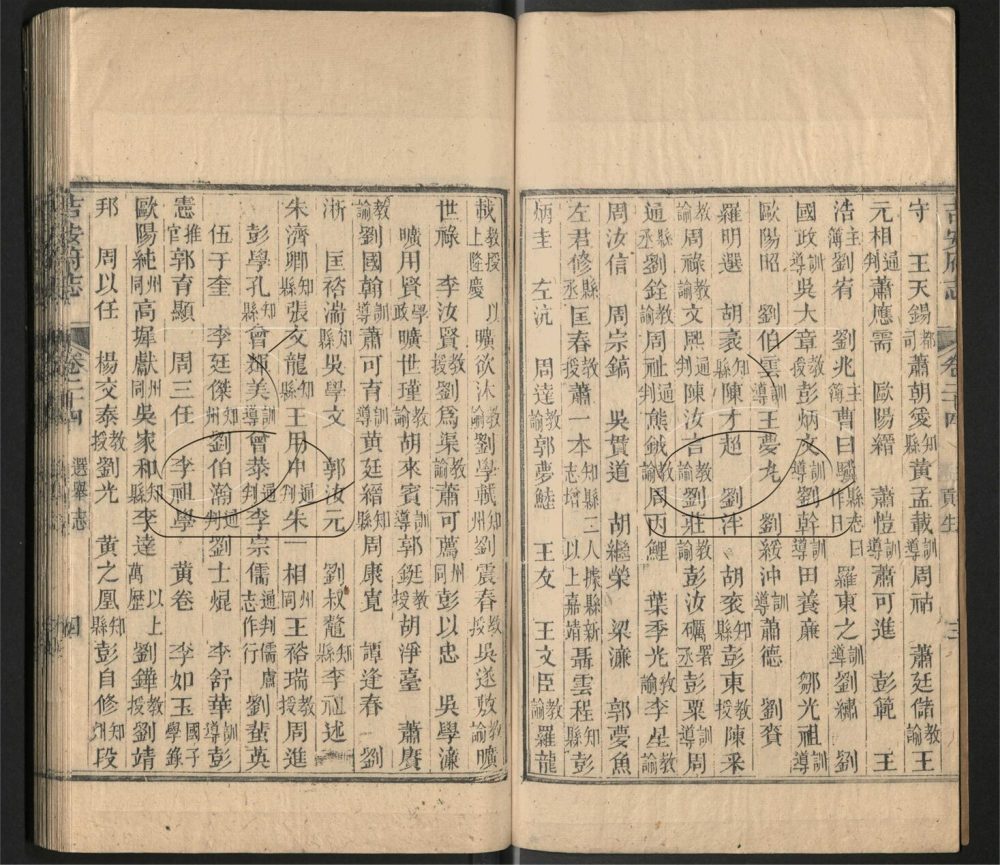 吉安府志 卷二十四 貢生 三
守 王天錫都司 蕭朝爱知縣 黃孟載訓導 周祜 蕭廷儲教諭 王
元相通判 蕭應需 歐陽縉 蕭愷訓導 蕭可進 彭範 王
浩主簿 劉宥 劉兆主簿 曹曰驥縣志曰作日 羅東之訓導 劉繡 劉
國政訓導 吳大章教授 彭炳文訓導 劉幹訓導 田養亷 鄒光祖訓導
歐陽昭 劉伯雲訓導 王夢九 劉綏沖訓導 蕭德 劉賚
羅明選 胡袤知縣 陳才超 劉泮 胡袤知縣 彭東教授 陳采
教諭 周祿教諭 文熙通判 陳汝言教諭 劉莊教諭 彭汝礪署丞 彭栗訓導 周
通縣丞 劉銓教諭 周祉通判 熊鉞教諭 周丙鯉 葉季光教諭 李星教諭
周汝信 周宗鎬 吳貫道 胡繼榮 梁濂 郭夢魚
左君修縣丞 匡春教諭 蕭一本知縣三人據縣新志增以上嘉靖 聶雲程知縣 彭
炳圭 左沆 周達教諭 郭夢鯥 王友 王文臣教諭 羅龍
載教授以上隆慶 曠欲沐教諭 劉學軾知州 劉震春教授 吳遂敖教諭 曠
世祿 李汝賢教授 劉爲渠教諭 蕭可薦州同 彭以忠 吳學濂
曠用賢學政 曠世瑾教諭 胡來賓訓導 郭鋌教授 胡淨臺 蕭賡
教諭 劉國翰訓導 蕭可育訓導 黃廷縉知縣 周康寬 譚逢春 劉
淅 匡裕湍知縣 吳學文 郭汝元 劉叔鼇知縣 李祖述
朱濟卿知縣 張文龍知縣 王用中通判 朱一相州同 王裕瑞教授 周進
彭學孔知縣 曾遷美訓導 曾蓁通判 李宗儒通判儒膚志作行 劉蜚英
伍于奎 李廷傑知州 劉伯瀚通判 劉士焜 李舒華訓導 彭
憲推官 郭育顯 周三任 李祖學 黃卷 李如玉國子學錄
歐陽純州同 高墀獻州同 吳家和知縣 李達以上萬歷 劉鏵教授 劉靖
邦 周以任 楊交泰教授 劉光 黃之凰知縣 彭自修知州 段
吉安府志 卷二十四 選舉志 四